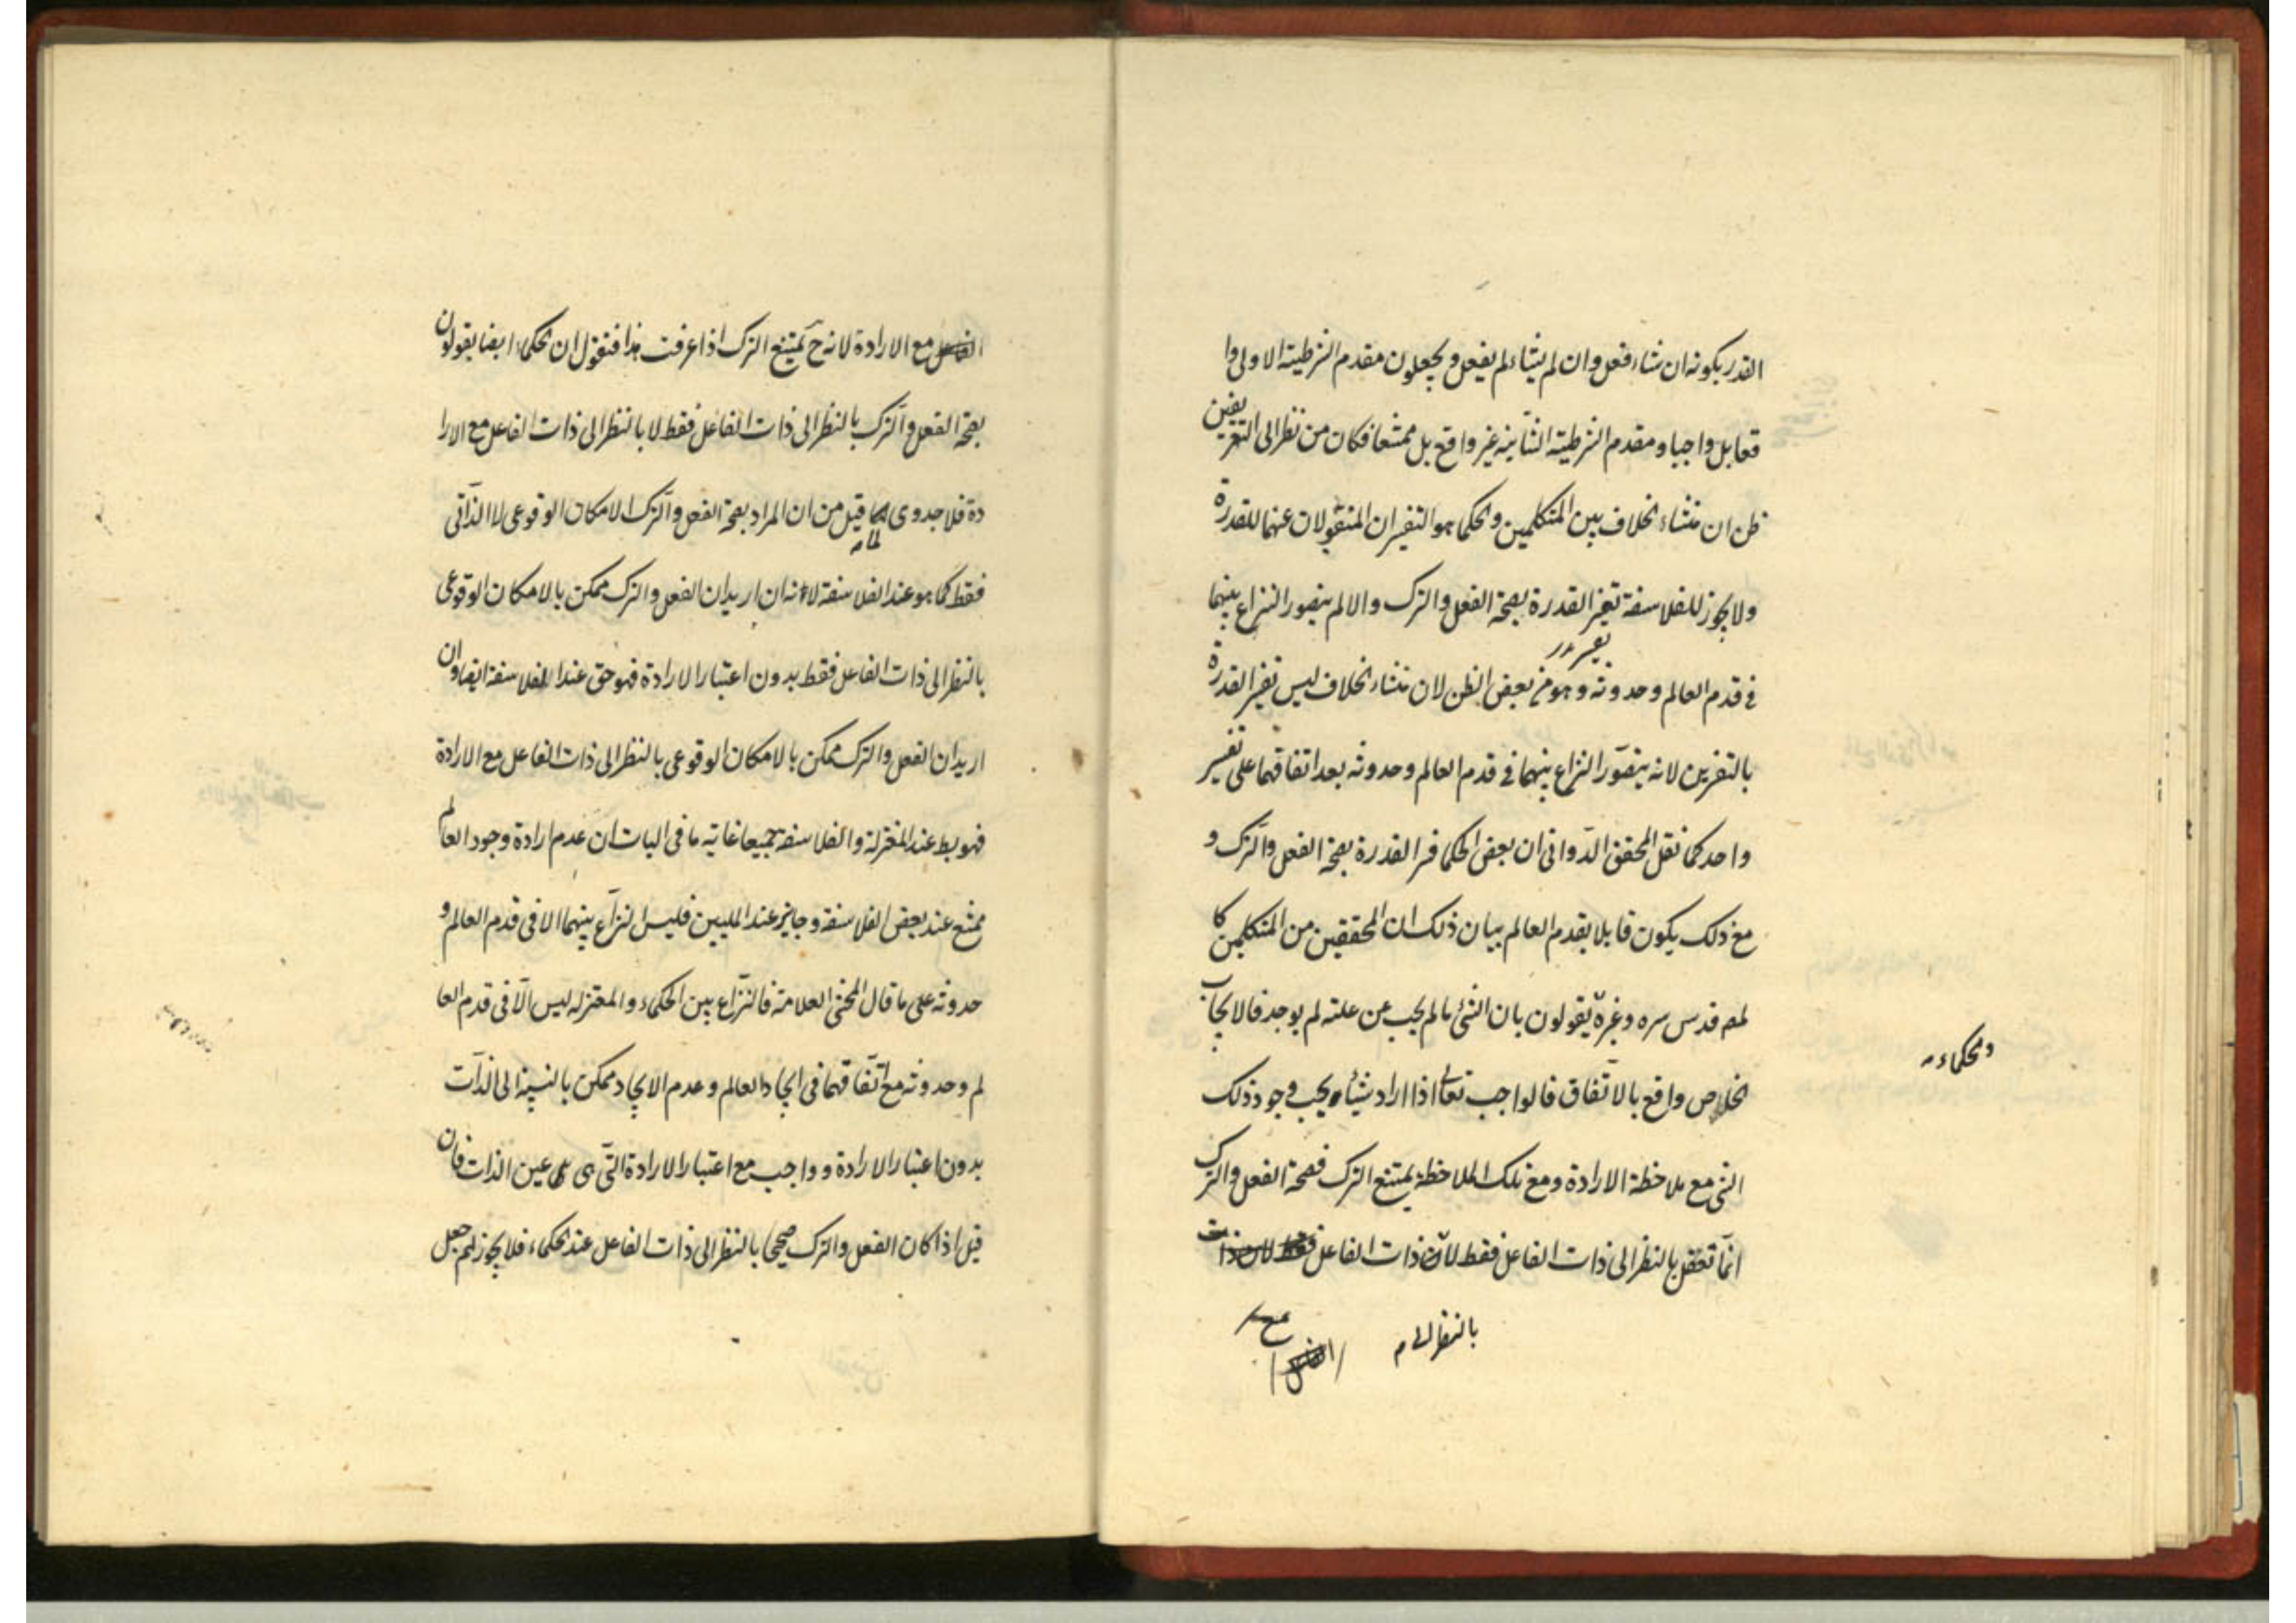 القدر بكونه ان شاء فعل وان لم يشاء لم يفعل ويجعلون مقدم الشرطية الاولى وا
قعا بل واجبا ومقدم الشرطية الثانية غير واقع بل ممتنعا فكان من نظر الى التعريفين
ظن ان منشاء الخلاف بين المتكلمين والحكما هو التفسيران المنقولان عنهما للقدرة
ولا يجوز للفلاسفة تفسير القدرة بصحة الفعل والترك والا لم يتصور النزاع بينهما
في قدم العالم وحدوثه وهو من بعض الظن لان منشاء الخلاف ليس تفسير القدرة
بالتفسيرين لانه يتصور النزاع بينهما في قدم العالم وحدوثه بعد اتفاقهما على تفسير
واحد كما نقل المحقق الدواني ان بعض الحكما فسر القدرة بصحة الفعل والترك و
مع ذلك يكون قايلا بقدم العالم بيان ذلك ان المحققين من المتكلمين كا
لمص قدس سره وغيره يقولون بان الشئ ما لم يجب عن علته لم يوجد فالايجاب
الخاص واقع بالاتفاق فالواجب تعالى اذا اراد شيئا يجب وجود ذلك
والحكماء
الشئ مع ملاحظة الارادة ومع تلك الملاحظة يمتنع الترك فصحة الفعل والترك
انما تعقل بالنظر الى ذات الفاعل فقط لان ذات الفاعل فقط لا ذات
بالنظر الى
مع
الفاعل
الفاعل مع الارادة لانه ح يمتنع الترك اذا عرفت هذا فنقول ان الحكماء ايضا يقولون
بصحة الفعل والترك بالنظر الى ذات الفاعل فقط لا بالنظر الى ذات الفاعل مع الارا
دة فلا جدوى لما قيل من ان المراد بصحة الفعل والترك الامكان الوقوعي لا الذاتي
فقط كما هو عند الفلاسفة لانه ان اريد ان الفعل والترك ممكن بالامكان الوقوعي
بالنظر الى ذات الفاعل فقط بدون اعتبار الارادة فهو حق عند الفلاسفة ايضا وان
اريد ان الفعل والترك ممكن بالامكان الوقوعي بالنظر الى ذات الفاعل مع الارادة
فهو بط عند المعتزلة والفلاسفة جميعا غاية ما في الباب ان عدم ارادة وجود العالم
ممتنع عند بعض الفلاسفة وجايز عند المليين فليس النزاع بينهما الا في قدم العالم و
حدوثه على ما قال المحشى العلامة فالنزاع بين الحكماء والمعتزله ليس الا في قدم العا
لم وحدوثه مع اتفاقهما في ايجاد العالم وعدم الايجاد ممكن بالنسبة الى الذات
بدون اعتبار الارادة وواجب مع اعتبار الارادة التى هي عين الذات فان
قيل اذا كان الفعل والترك صحيحا بالنظر الى ذات الفاعل عند الحكماء فلا يجوز لهم جعل